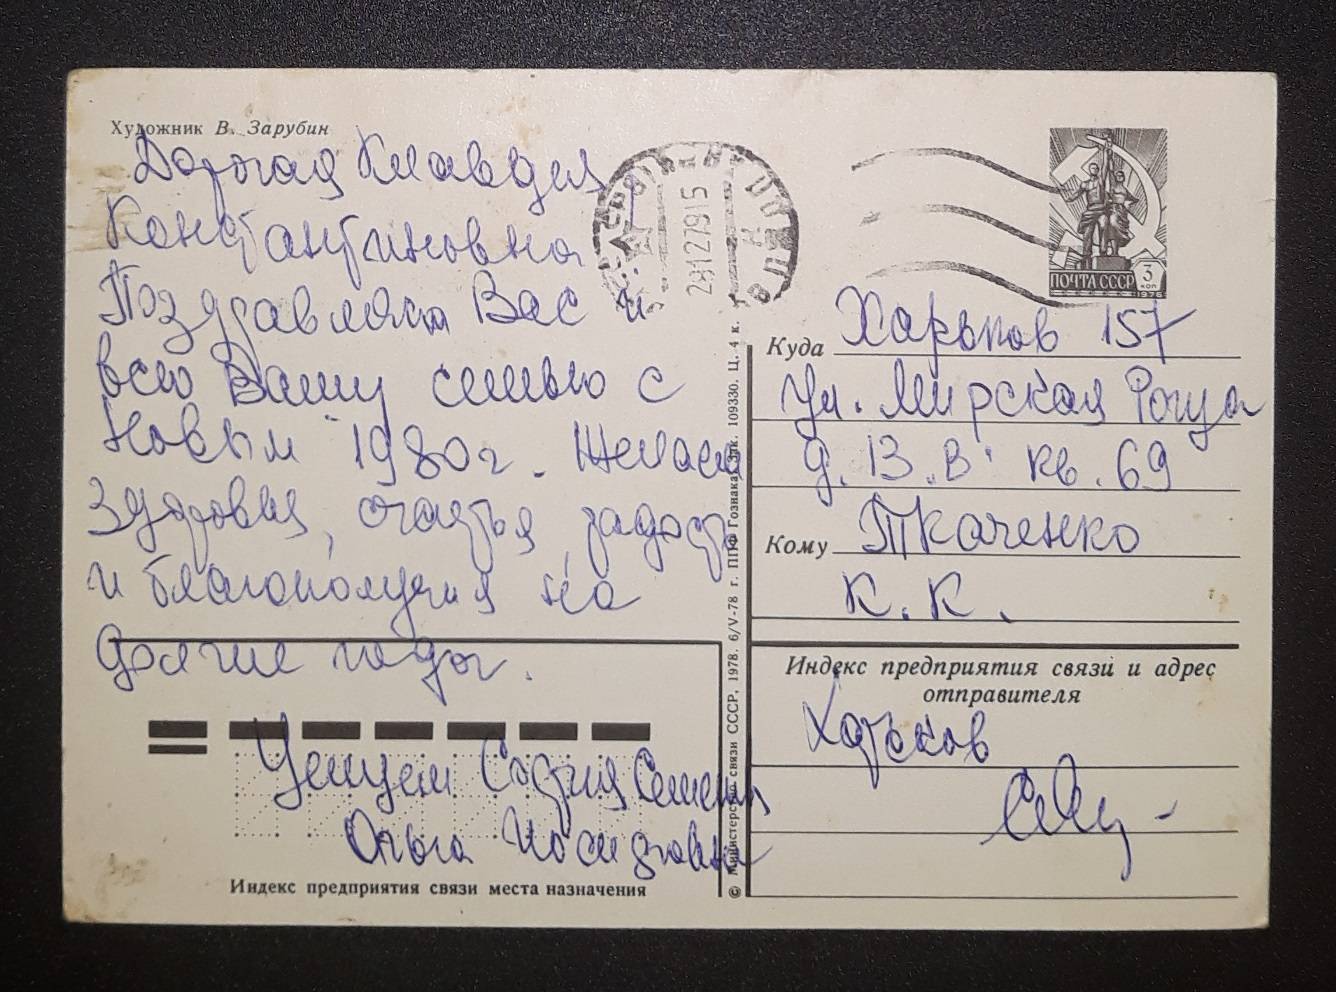 Художник В. Зарубин
Дорогая Клавдия
Константиновна
Поздравляем Вас и
всю Вашу семью с
Новым 1980г. Желаем
здоровья, счастья, радости
и благополучия на
долгие годы.
Целуем София Семен
Ольга Иосифовна
Индекс предприятия связи места назначения
28127915
© Министерство связи СССР, 1978. 6/V-78 г. ППФ Гознака. Зак. 109330. Ц. 4 к.
ПОЧТА СССР 3 коп
1976
Куда Харьков 157
Ул. Мирская Роща
д. 13 "В" кв. 69
Кому Ткаченко
К. К.
Индекс предприятия связи и адрес
отправителя
Харьков